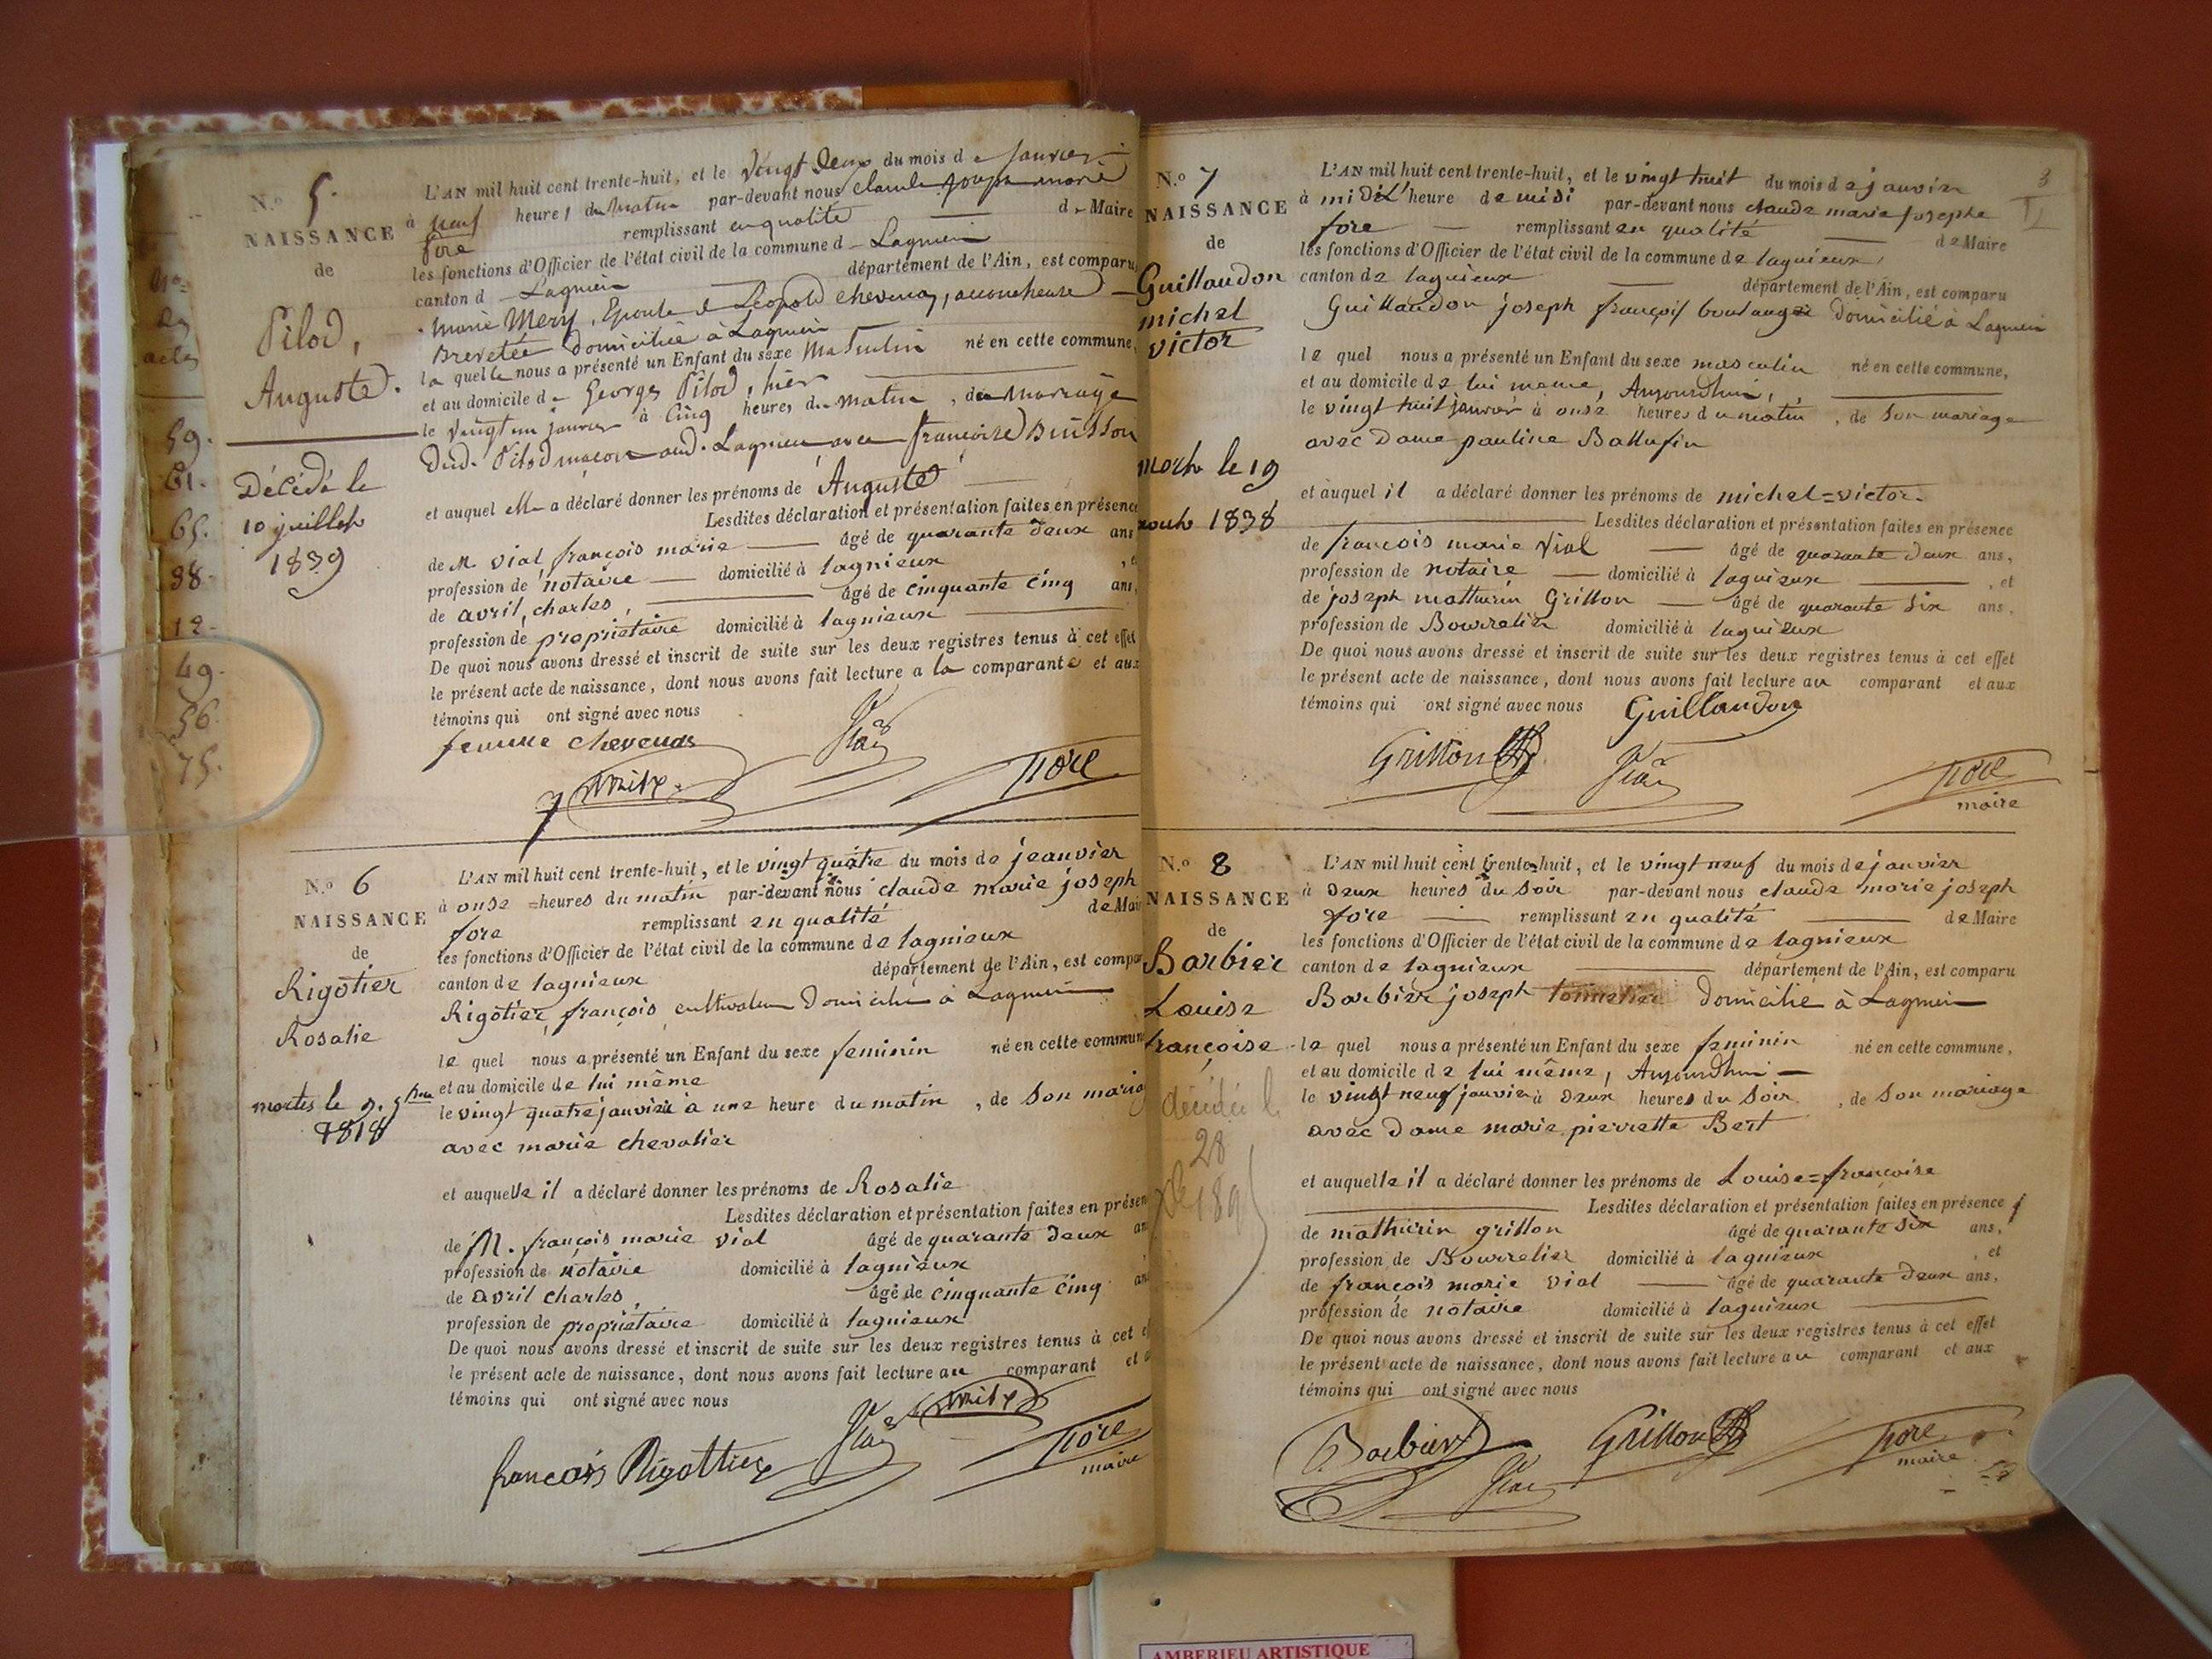 N.o 5.
NAISSANCE
de
Pilod,
Auguste.
Décédé le
10 juillet
1839
L'AN mil huit cent trente-huit, et le vingt deux du mois de Janvier
à neuf heures du matin par-devant nous Claude Joseph marie
fore remplissant en qualité de Maire
les fonctions d'Officier de l'état civil de la commune d Lagnieu
canton d Lagnieu département de l'Ain, est comparu
Marie Mery, Epouse de Léopold Chevenas, accoucheuse
Brevetée domiciliée à Lagnieu
la quelle nous a présenté un Enfant du sexe Masculin né en cette commune,
et au domicile de Georges Pilod, hier
le vingt un janvier à cinq heures du matin, du mariage
dud. Pilod maçon aud. Lagnieu avec françoise Buisson
et auquel elle a déclaré donner les prénoms de Auguste
Lesdites déclaration et présentation faites en présence
de M. vial françois marie âgé de quarante deux ans
profession de notaire domicilié à lagnieux
de avril, charles, âgé de cinquante cinq ans,
profession de propriétaire domicilié à lagnieux
De quoi nous avons dressé et inscrit de suite sur les deux registres tenus à cet effet
le présent acte de naissance, dont nous avons fait lecture a la comparante et aux
témoins qui ont signé avec nous
femme chevenas
Vial
avril
fore
N.o 6
NAISSANCE
de
Rigotier
Rosalie
L'AN mil huit cent trente-huit, et le vingt quatre du mois de jeanvier
à onze heures du matin par-devant nous claude marie joseph
fore remplissant en qualité de Mai
les fonctions d'Officier de l'état civil de la commune de lagnieux
canton de lagnieux département de l'Ain, est compar
Rigotier, françois, cultivateur Domicilié à Lagnieu
le quel nous a présenté un Enfant du sexe feminin né en cette commun
et au domicile de lui même
le vingt quatre janvier à une heure du matin, de son maria
avec marie chevalier
et auquelle il a déclaré donner les prénoms de Rosalie
Lesdites déclaration et présentation faites en présen
de M. françois marie vial âgé de quarante deux an
profession de notaire domicilié à lagnieux
de avril charles, âgé de cinquante cinq an
profession de propriétaire domicilié à lagnieux
De quoi nous avons dressé et inscrit de suite sur les deux registres tenus à cet e
le présent acte de naissance, dont nous avons fait lecture au comparant et a
témoins qui ont signé avec nous
françois Rigottier
Vial
avril
fore
maire
N.o 7
NAISSANCE
de
Guillaudon
michel
victor
mort le 19
août 1838
L'AN mil huit cent trente-huit, et le vingt huit du mois de janvier
à midi heure de midi par-devant nous claude marie josephe
fore remplissant en qualité de Maire
les fonctions d'Officier de l'état civil de la commune de lagnieux,
canton de lagnieux département de l'Ain, est comparu
Guillaudon joseph françois boulanger domicilié à Lagnieu
le quel nous a présenté un Enfant du sexe masculin né en cette commune,
et au domicile de lui meme, Aujourdhui,
le vingt huit janvier à onze heures du matin, de son mariage
avec Dame pauline Ballufin
et auquel il a déclaré donner les prénoms de michel=victor.
Lesdites déclaration et présentation faites en présence
de françois marie Vial âgé de quarante deux ans,
profession de notaire domicilié à lagnieux, et
de joseph mathurin Grillon âgé de quarante six ans,
profession de Bourrelier domicilié à lagnieux
De quoi nous avons dressé et inscrit de suite sur les deux registres tenus à cet effet
le présent acte de naissance, dont nous avons fait lecture au comparant et aux
témoins qui ont signé avec nous Guillaudon
Grillon
Vial
fore
maire
N.o 8
NAISSANCE
de
Barbier
Louise
françoise
décédée l
28
L'AN mil huit cent trente-huit, et le vingt neuf du mois de janvier
à deux heures du soir par-devant nous claude marie joseph
fore remplissant en qualité de Maire
les fonctions d'Officier de l'état civil de la commune de lagnieux
canton de lagnieux département de l'Ain, est comparu
Barbier joseph tonnelier domicilié à Lagnieu
le quel nous a présenté un Enfant du sexe feminin né en cette commune,
et au domicile de lui même, Aujourdhui
le vingt neuf janvier à deux heures du soir, de son mariage
avec dame marie pierrette Bert
et auquelle il a déclaré donner les prénoms de Louise=françoise
Lesdites déclaration et présentation faites en présence
de mathurin grillon âgé de quarante six ans,
profession de Bourrelier domicilié à lagnieux, et
de françois marie vial âgé de quarante deux ans,
profession de notaire domicilié à lagnieux
De quoi nous avons dressé et inscrit de suite sur les deux registres tenus à cet effet
le présent acte de naissance, dont nous avons fait lecture au comparant et aux
témoins qui ont signé avec nous
Barbier
Vial
Grillon
fore
maire
59.
61.
65.
38.
12.
49.
56.
75.
AMBERIEU ARTISTIQUE